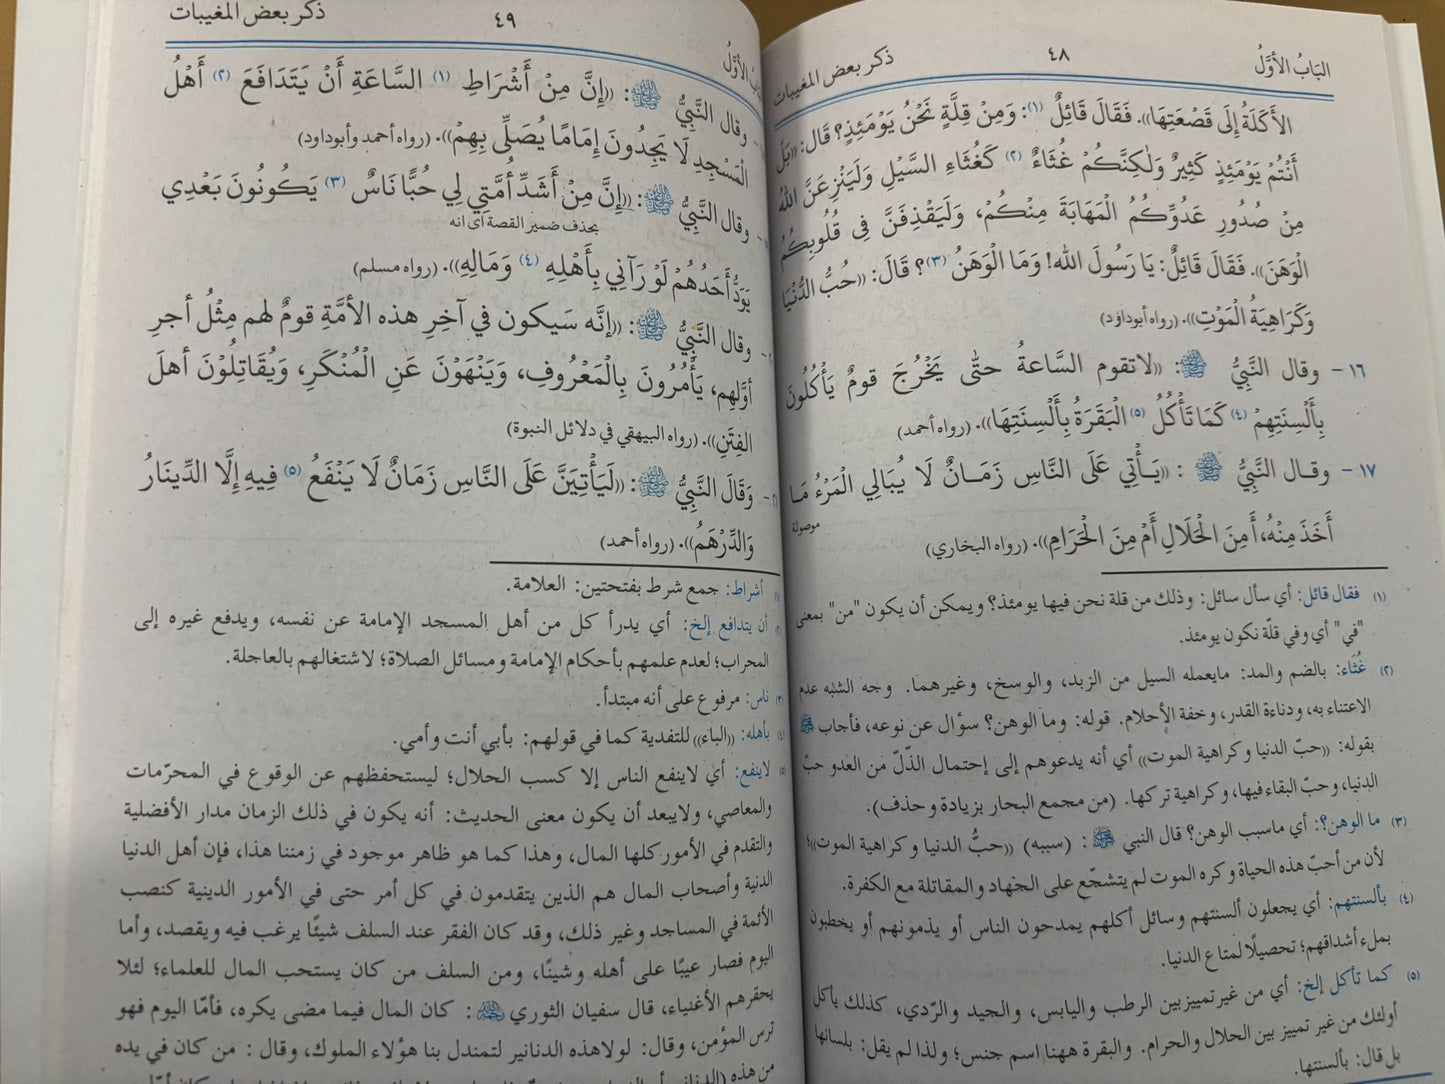 البَابُ الأوَّلُ
٤٨
ذكر بعض المغيبات
الأَكَلَةُ إِلَى قَصْعَتِهَا)). فَقَالَ قَائِلٌ (١): وَمِنْ قِلَّةٍ نَحْنُ يَوْمَئِذٍ؟ قَالَ: ((بَلْ
أَنْتُمْ يَوْمَئِذٍ كَثِيرٌ وَلَكِنَّكُمْ غُثَاءٌ (٢) كَغُثَاءِ السَّيْلِ وَلَيَنْزِعَنَّ اللهُ
مِنْ صُدُورِ عَدُوِّكُمُ الْمَهَابَةَ مِنْكُمْ، وَلَيَقْذِفَنَّ فِي قُلُوبِكُمُ
الْوَهَنَ)). فَقَالَ قَائِلٌ: يَا رَسُولَ اللهِ! وَمَا الْوَهَنُ (٣)؟ قَالَ: ((حُبُّ الدُّنْيَا
وَكَرَاهِيَةُ الْمَوْتِ)). (رواه أبوداؤد)
١٦ - وقال النَّبِيُّ ﷺ: ((لاتقوم السَّاعةُ حتَّى يَخْرُجَ قومٌ يَأْكُلُونَ
بِأَلْسِنَتِهِمْ (٤) كَمَا تَأْكُلُ (٥) الْبَقَرَةُ بِأَلْسِنَتِهَا)). (رواه أحمد)
١٧ - وقال النَّبِيُّ ﷺ: ((يَأْتِي عَلَى النَّاسِ زَمَانٌ لَا يُبَالِي الْمَرْءُ مَا
موصولة
أَخَذَ مِنْهُ، أَمِنَ الْحَلَالِ أَمْ مِنَ الْحَرَامِ)). (رواه البخاري)
(١) فقال قائل: أي سأل سائل: وذلك من قلة نحن فيها يومئذ؟ ويمكن أن يكون "من" بمعنى
"في" أي وفي قلّة نكون يومئذ.
(٢) غُثَاء: بالضم والمد: مايعمله السيل من الزبد، والوسخ، وغيرهما. وجه الشبه عدم
الاعتناء به، ودناءة القدر، وخفة الأحلام. قوله: وما الوهن؟ سؤال عن نوعه، فأجاب ﷺ
بقوله: ((حبّ الدنيا وكراهية الموت)) أي أنه يدعوهم إلى إحتمال الذّلّ من العدو حبّ
الدنيا، وحبّ البقاء فيها، وكراهية تركها. (من مجمع البحار بزيادة وحذف).
(٣) ما الوهن؟: أي ماسبب الوهن؟ قال النبي ﷺ: (سببه) ((حبُّ الدنيا وكراهية الموت))؛
لأن من أحبّ هذه الحياة وكره الموت لم يتشجّع على الجهاد والمقاتلة مع الكفرة.
(٤) بألسنتهم: أي يجعلون ألسنتهم وسائل أكلهم يمدحون الناس أو يذمونهم أو يخطبون
بملء أشداقهم؛ تحصيلًا لمتاع الدنيا.
(٥) كما تأكل إلخ: أي من غير تمييز بين الرطب واليابس، والجيد والرّدي، كذلك يأكل
أولئك من غير تمييز بين الحلال والحرام. والبقرة ههنا اسم جنس؛ ولذا لم يقل: بلسانها
بل قال: بألسنتها.
٤٩
ذكر بعض المغيبات
وقال النَّبِيُّ ﷺ: ((إِنَّ مِنْ أَشْرَاطِ (١) السَّاعَةِ أَنْ يَتَدَافَعَ (٢) أَهْلُ
الْمَسْجِدِ لَا يَجِدُونَ إِمَامًا يُصَلِّي بِهِمْ)). (رواه أحمد وأبوداود)
وقال النَّبِيُّ ﷺ: ((إِنَّ مِنْ أَشَدِّ أُمَّتِي لِي حُبًّا نَاسٌ (٣) يَكُونُونَ بَعْدِي
بحذف ضمير القصة أى انه
يَوَدُّ أَحَدُهُمْ لَوْ رَآنِي بِأَهْلِهِ (٤) وَمَالِهِ)). (رواه مسلم)
وقال النَّبِيُّ ﷺ: ((إنَّه سَيكون في آخِرِ هذه الأمَّةِ قومٌ لهم مِثْلُ أجرِ
أوَّلهِم، يَأْمُرُونَ بِالْمَعْرُوفِ، وَيَنْهَوْنَ عَنِ الْمُنْكَرِ، وَيُقَاتِلُوْنَ أهلَ
الفِتَنِ)). (رواه البيهقي في دلائل النبوة)
وَقَالَ النَّبِيُّ ﷺ: ((لَيَأْتِيَنَّ عَلَى النَّاسِ زَمَانٌ لَا يَنْفَعُ (٥) فِيهِ إِلَّا الدِّينَارُ
وَالدِّرْهَمُ)). (رواه أحمد)
(١) أشراط: جمع شرط بفتحتين: العلامة.
(٢) أن يتدافع إلخ: أي يدرأ كل من أهل المسجد الإمامة عن نفسه، ويدفع غيره إلى
المحراب؛ لعدم علمهم بأحكام الإمامة ومسائل الصلاة؛ لاشتغالهم بالعاجلة.
(٣) ناس: مرفوع على أنه مبتدأ.
(٤) بأهله: ((الباء)) للتفدية كما في قولهم: بأبي أنت وأمي.
(٥) لاينفع: أي لاينفع الناس إلا كسب الحلال؛ ليستحفظهم عن الوقوع في المحرّمات
والمعاصي، ولايبعد أن يكون معنى الحديث: أنه يكون في ذلك الزمان مدار الأفضلية
والتقدم في الأمور كلها المال، وهذا كما هو ظاهر موجود في زمننا هذا، فإن أهل الدنيا
الدنية وأصحاب المال هم الذين يتقدمون في كل أمر حتى في الأمور الدينية كنصب
الأئمة في المساجد وغير ذلك، وقد كان الفقر عند السلف شيئًا يرغب فيه ويقصد، وأما
اليوم فصار عيبًا على أهله وشينًا، ومن السلف من كان يستحب المال للعلماء؛ لئلا
يحقرهم الأغنياء، قال سفيان الثوري ﷫: كان المال فيما مضى يكره، فأمّا اليوم فهو
ترس المؤمن، وقال: لولا هذه الدنانير لتمندل بنا هؤلاء الملوك، وقال: من كان في يده
من هذه